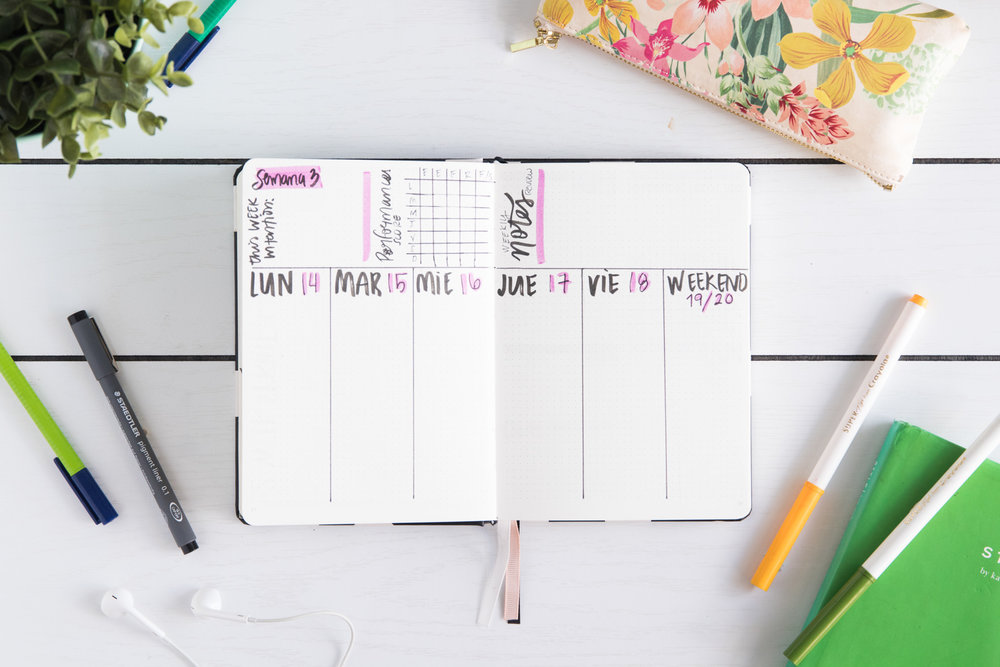 Semana 3
this WEEK
intention:
Performance
SCORE
WEEKLY
notes
review
LUN 14
MAR 15
MIE 16
JUE 17
VIE 18
WEEKEND
19/20
STAEDTLER
pigment liner 0.1
Crayola
by